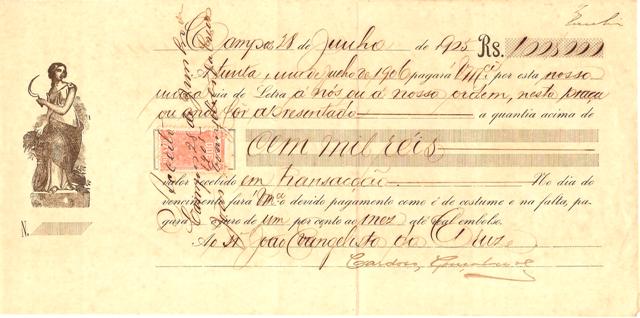 Campos 28 de Junho de 1905 Rs. 100$000
A trinta e um de Julho de 1906 pagará Vmcê por esta nossa
unica via de Letra a nós ou á nossa ordem, nesta praça
ou onde fôr apresentado a quantia acima de
Cem mil réis
valor recebido em transacção No dia do
vencimento fará Vmcê o devido pagamento como é de costume e na falta, pa-
gará o juro de um por cento ao mez até real embolso.
Ao Sr. João Evangelista da Cruz
N.
Cardoso
Campos 28 de Junho
João Evangelista da Cruz